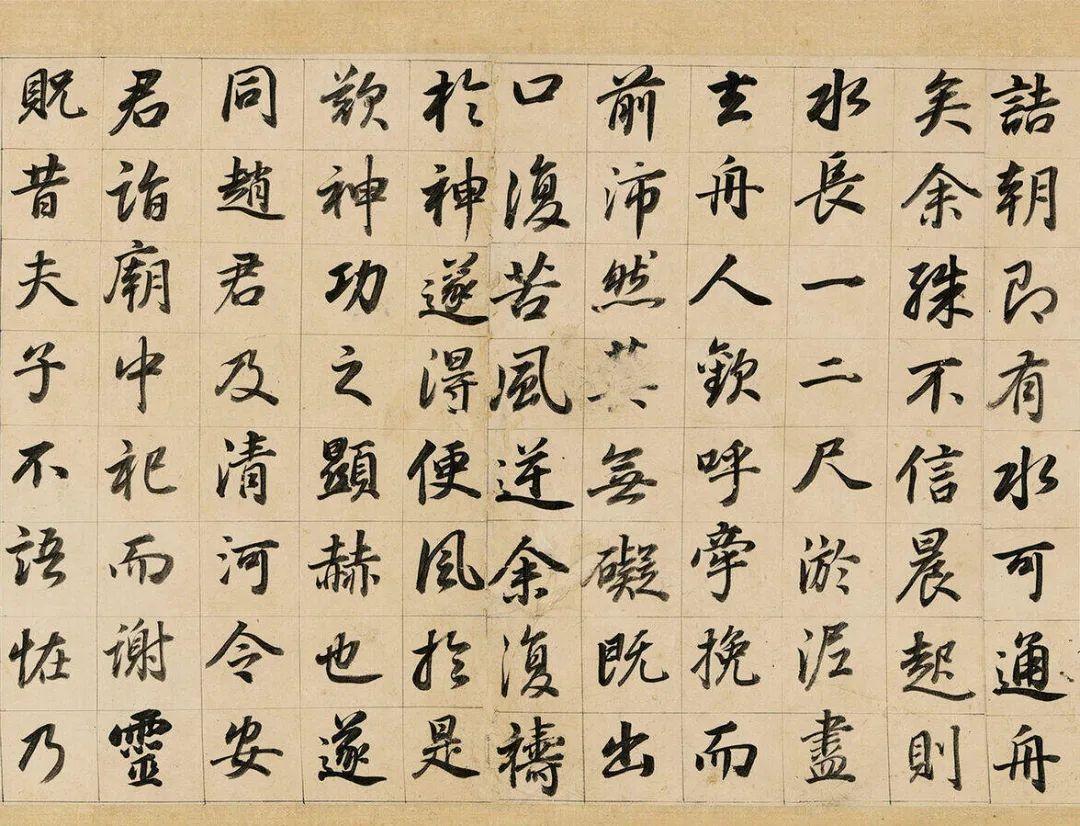 詰朝即有水可通舟
矣余殊不信晨起則
水長一二尺淤泥盡
去舟人歡呼牽挽而
前沛然無礙既出
口復苦風逆余復禱
於神遂得便風於是
歎神功之顯赫也遂
同趙君及清河令安
君詣廟中祀而謝靈
貺昔夫子不語怪乃